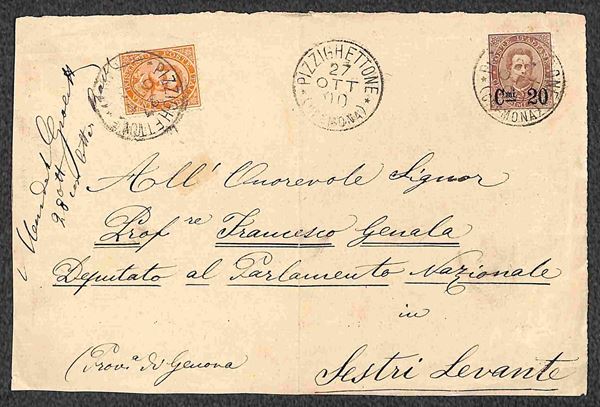 PIZZIGHETTONE
27
OTT
90
(CREMONA)
PIZZIGHETTONE
Cmi 20
28 ott
All' Onorevole Signor
Prof.re Francesco Genala
Deputato al Parlamento Nazionale
in
Sestri Levante
(Prova di Genova